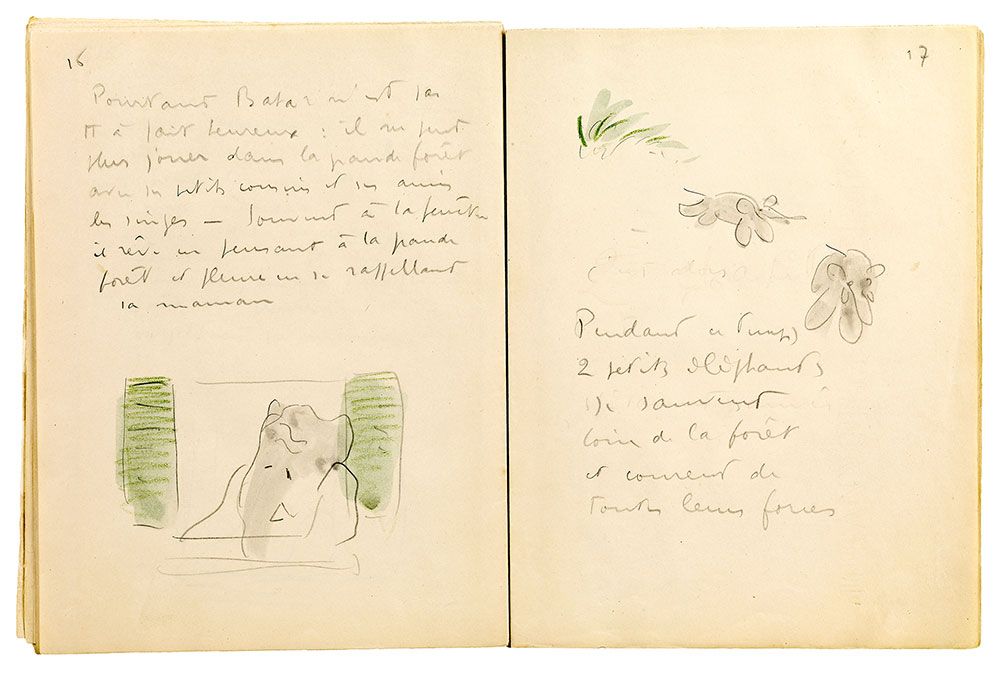 16
Pourtant Babar n'est pas
tt à fait heureux : il ne peut
plus jouer dans la grande forêt
avec ses petits cousins et ses amis
les singes — Souvent à la fenêtre
il rêve en pensant à la grande
forêt et pleure en se rappellant
sa maman
17
C'est alors
Pendant ce temps
2 petits éléphants
se sauvent
loin de la forêt
et courent de
toutes leurs forces